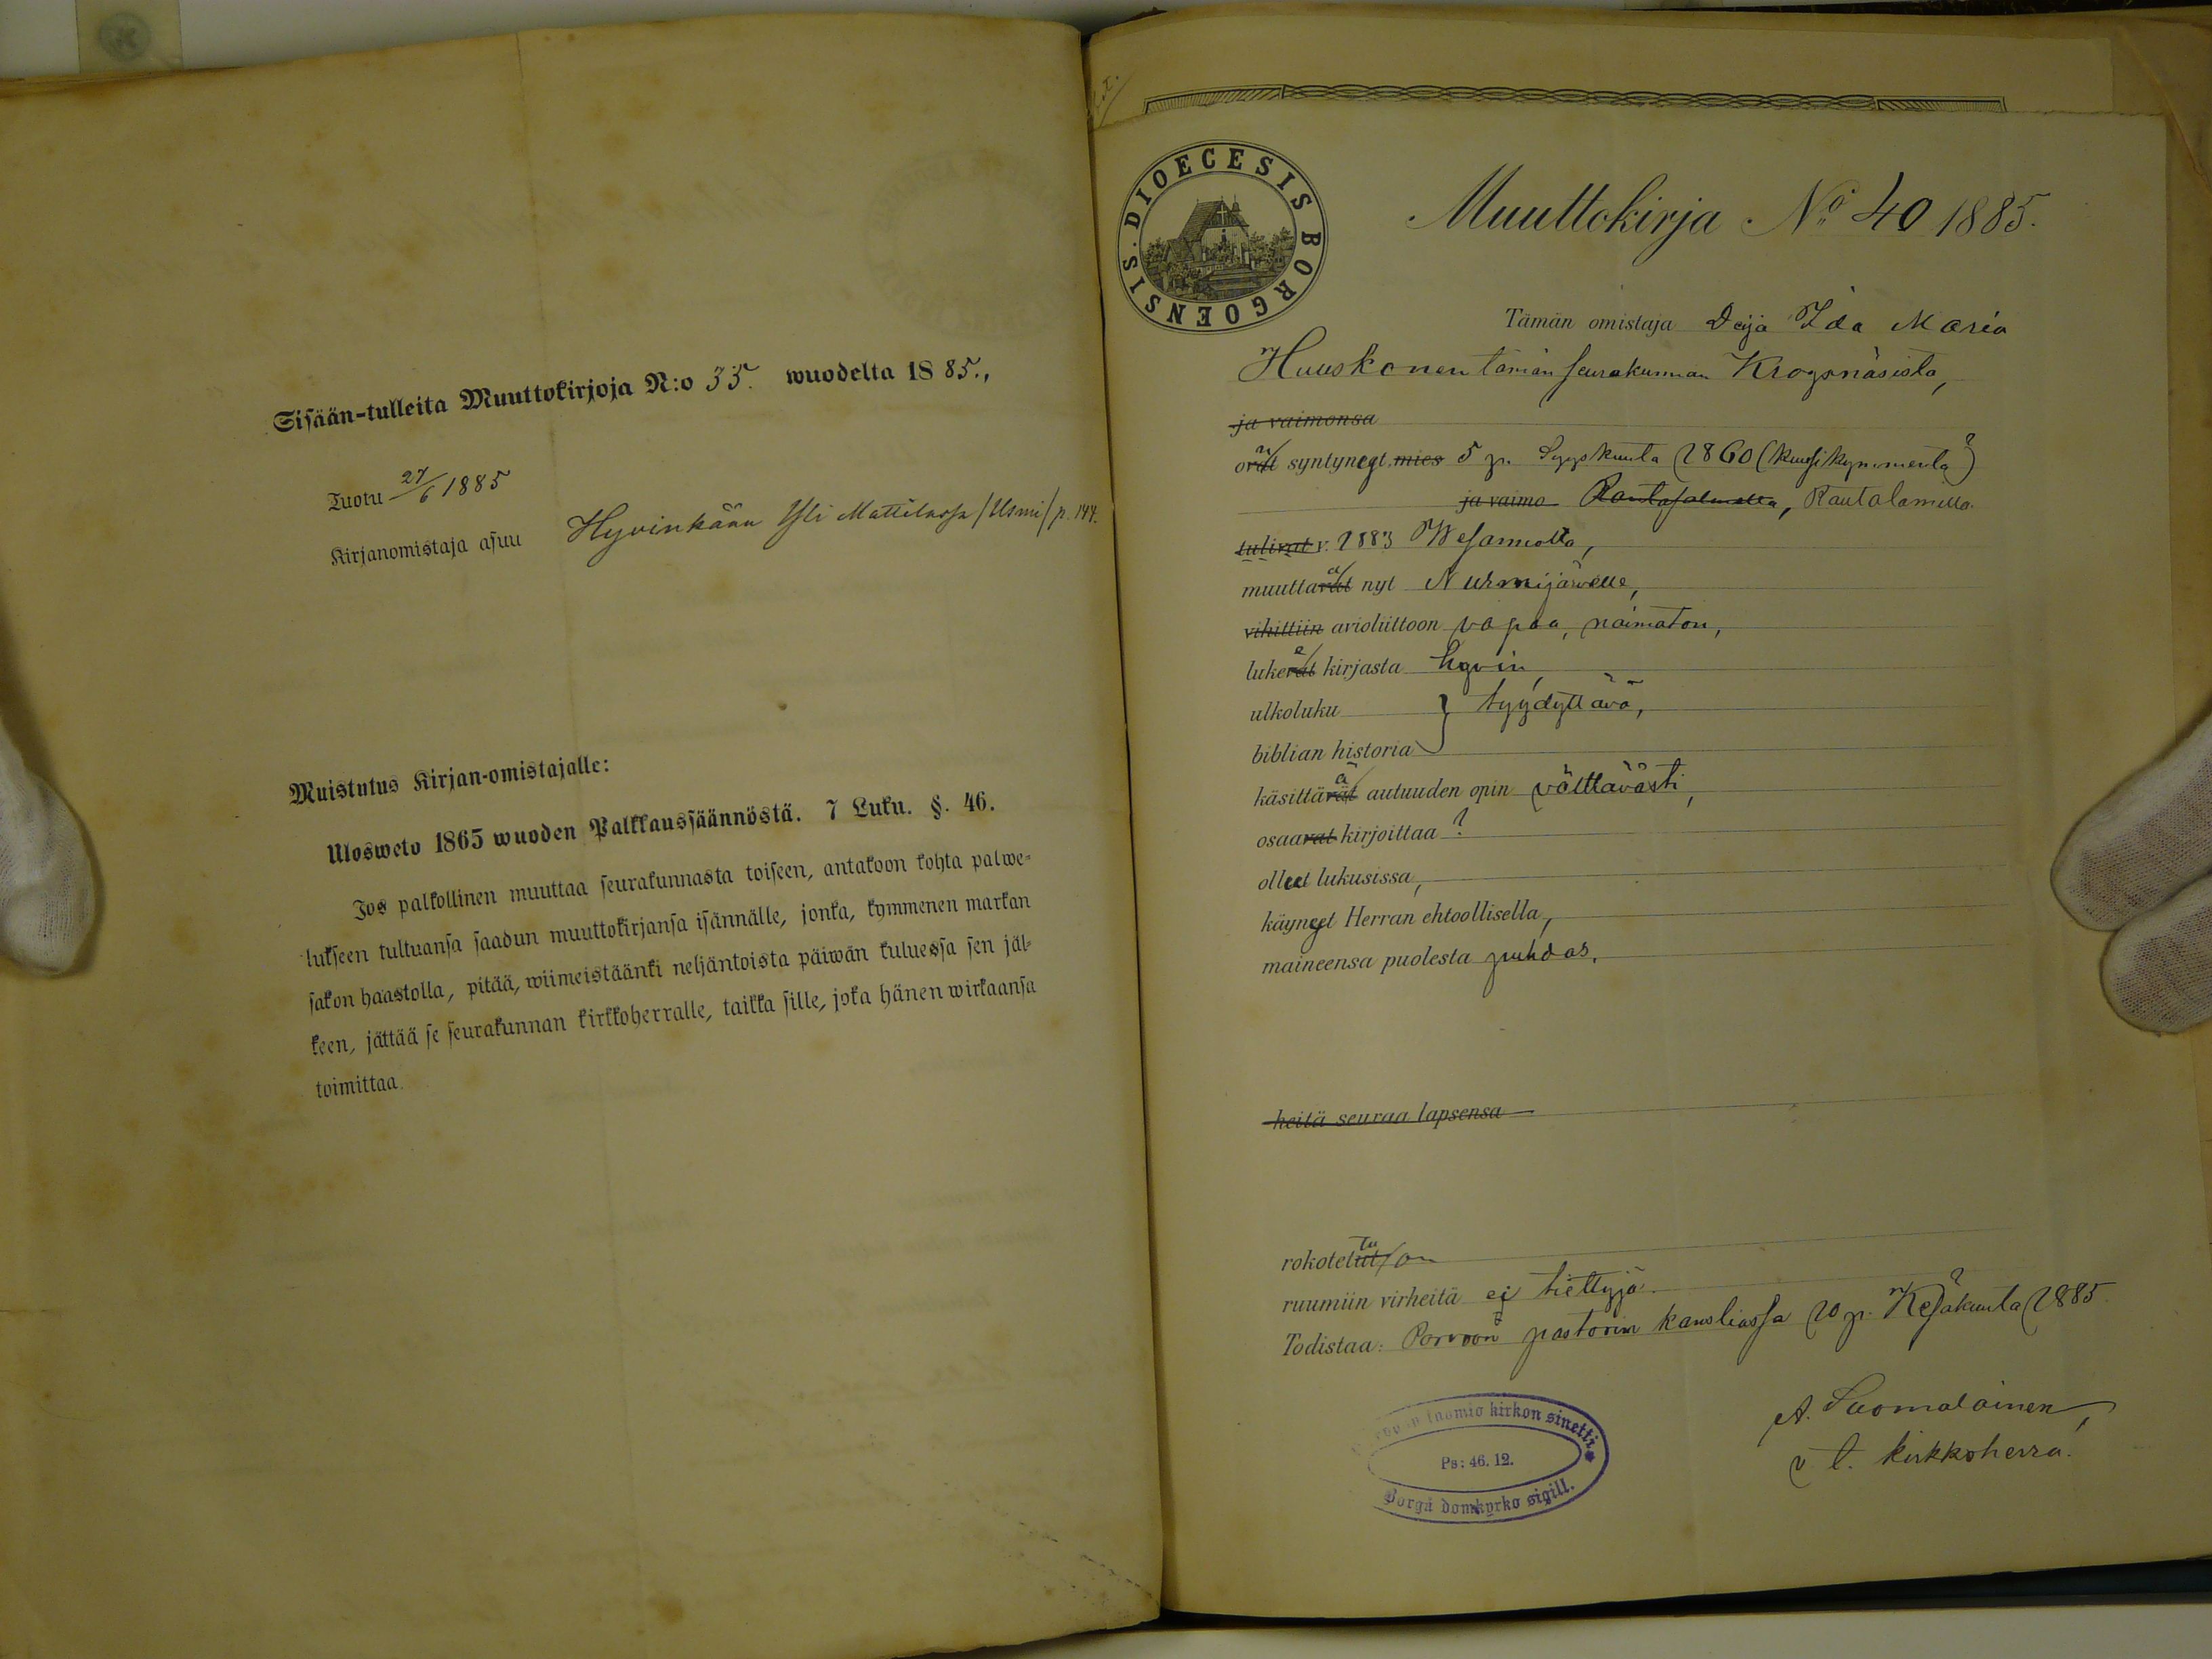 Sisään-tulleita Muuttokirjoja N:o 35. wuodelta 1885.,
Tuotu 27/6 1885
Kirjanomistaja asuu Hyvinkään Yli Mattilassa /Usmi/ p. 144.
Muistutus Kirjan-omistajalle:
Ulosweto 1865 wuoden Palkkaussäännöstä. 7 Luku. §. 46.
Jos palkollinen muuttaa seurakunnasta toiseen, antakoon kohta palwe-
lukseen tultuansa saadun muuttokirjansa isännälle, jonka, kymmenen markan
sakon haastolla, pitää, wiimeistäänki neljäntoista päiwän kuluessa sen jäl-
keen, jättää se seurakunnan kirkkoherralle, taikka sille, joka hänen wirkaansa
toimittaa.
DIOECESIS BORGOENSIS.
Muuttokirja No 40 1885.
Tämän omistaja Ida Maria
Huuskonen tämän seurakunnan Krogsnäsistä,
ja vaimonsa
ovat syntyneet mies 5 p. Syyskuuta 1860 (kuusikymmentä)
ja vaimo Rautasalmella, Rautalamilla.
tulivat v. 1883 Wesannolta,
muuttavat nyt Nurmijärvelle,
vihittiin avioliittoon vapaa, naimaton,
lukevat kirjasta hyvin,
ulkoluku } tyydyttävä,
biblian historia
käsittävät autuuden opin välttävästi,
osaavat kirjoittaa ?
olleet lukusissa,
käyneet Herran ehtoollisella,
maineensa puolesta puhdas.
heitä seuraa lapsensa
rokotetut/on
ruumiin virheitä ei tiettyjä.
Todistaa: Porvoon pastorin kansliassa 20 p. Kesäkuuta 1885.
A. Suomalainen,
v. t. kirkkoherra.
tuomio kirkon sinetti
Ps: 46. 12.
Borgå domkyrko sigill.